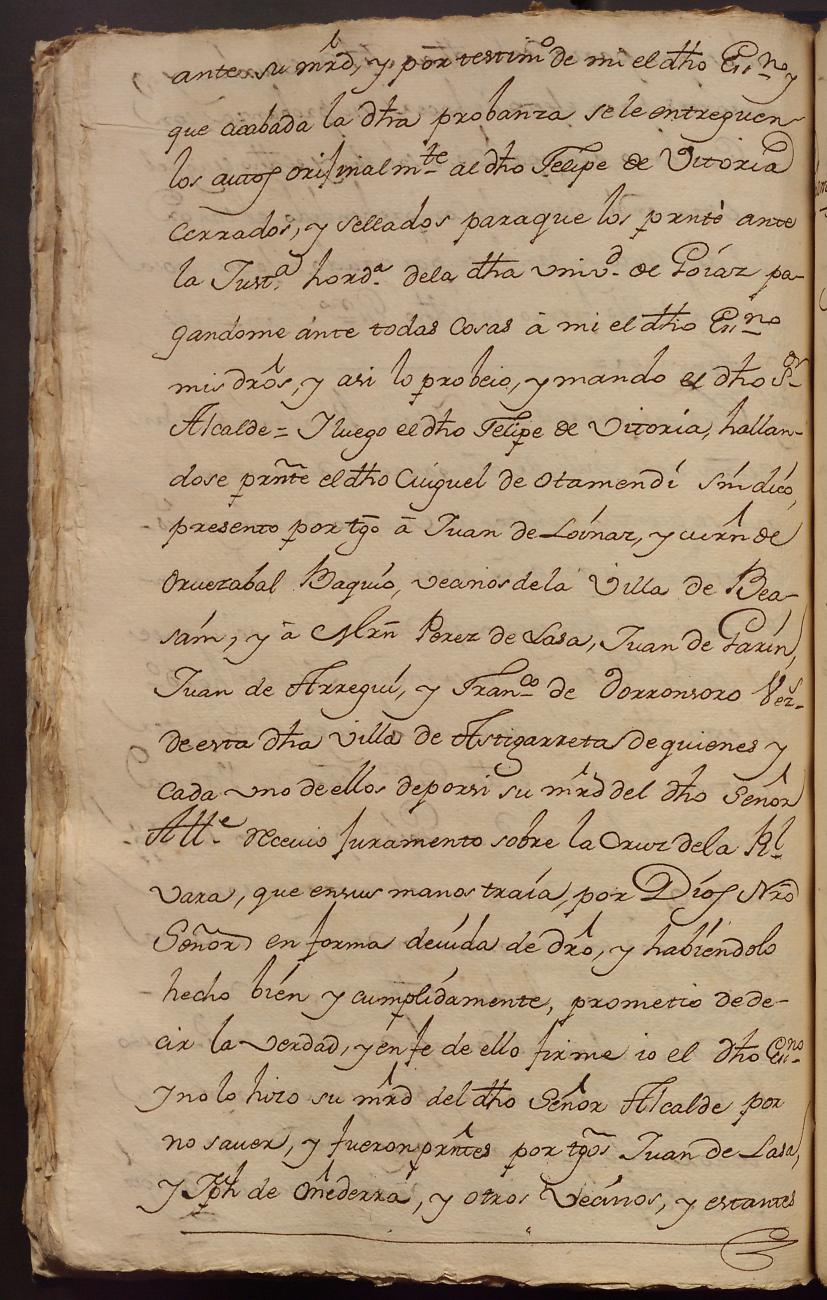 ante su mrd, y por testimo de mi el dho Essno y
que acabada la dha probanza se le entreguen
los autos orijinalmte al dho Felipe de Vitoria
Cerrados, y sellados paraque los prnte ante
la Justa horda dela dha univd de Goiaz pa-
gandome ante todas Cosas â mi el dho Essno
mis dros, y asi lo probeio, y mando el dho Sor
Alcalde = Y luego el dho Felipe de Vitoria, hallan-
dose prnte el dho Miguel de Otamendi sindico,
presento por tgo â Juan de Loinaz, y
Oruezabal Baquio, vecinos dela Villa de Bea-
sain, y â Mrn Perez de Lasa, Juan de Garin,
Juan de Arregui, y Franco de Dorronsoro Vezs
de esta dha villa de Astigarreta de quienes y
cada uno de ellos deporsi su mrd del dho Señor
Alle recevio juramento sobre la Cruz dela Rl
vara, que en sus manos traía, por Dios Nro
Señor en forma devida de dro, y habiendolo
hecho bien y cumplidamente, prometio de de-
cir la verdad, y en fe de ello firme io el dho Essno
y no lo hizo su mrd del dho Señor Alcalde por
no saver, y fueron prntes por tgos Juan de Lasa,
y Jph de Mederra, y otros Vecinos, y estantes